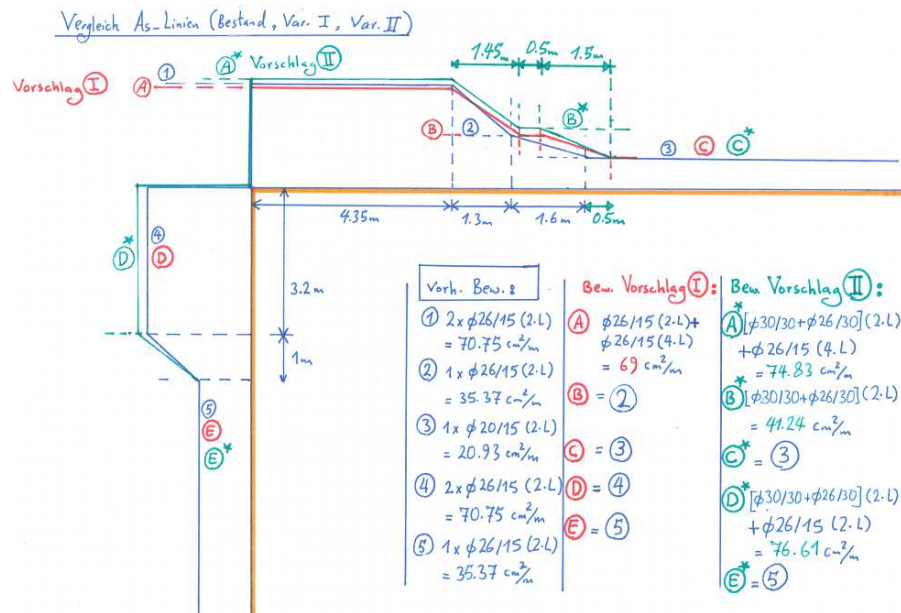 Vergleich As-Linien (Bestand, Var. I, Var. II)
1.45m 0.5m 1.5m
① A* Vorschlag II
Vorschlag I A
B ② B*
③ C C*
4.35m 1.3m 1.6m 0.5m
④
D* D
3.2m
1m
⑤
E
E*
Vorh. Bew.:
① 2x φ26/15 (2.L)
= 70.75 cm²/m
② 1x φ26/15 (2.L)
= 35.37 cm²/m
③ 1x φ20/15 (2.L)
= 20.93 cm²/m
④ 2x φ26/15 (2.L)
= 70.75 cm²/m
⑤ 1x φ26/15 (2.L)
= 35.37 cm²/m
Bew. Vorschlag I:
A φ26/15 (2.L)+
φ26/15 (4.L)
= 69 cm²/m
B = ②
C = ③
D = ④
E = ⑤
Bew. Vorschlag II:
A* [φ30/30+φ26/30] (2.L)
+φ26/15 (4.L)
= 74.83 cm²/m
B* [φ30/30+φ26/30] (2.L)
= 41.24 cm²/m
C* = ③
D* [φ30/30+φ26/30] (2.L)
+φ26/15 (2.L)
= 76.61 cm²/m
E* = ⑤